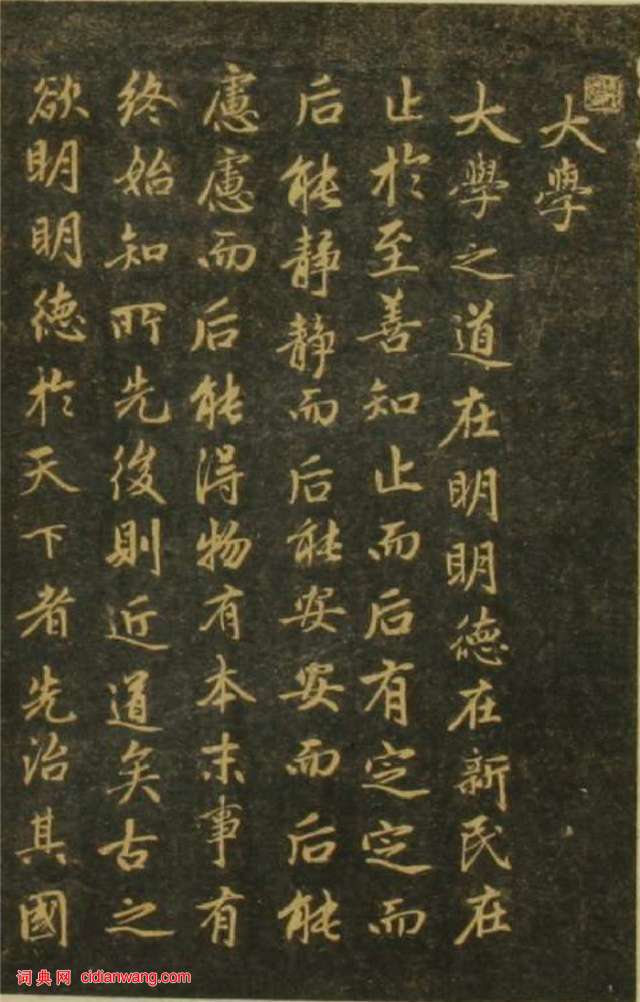 大學
大學之道在明明德在新民在
止於至善知止而后有定定而
后能靜靜而后能安安而后能
慮慮而后能得物有本末事有
終始知所先後則近道矣古之
欲明明德於天下者先治其國
词典网 cidianwang.com